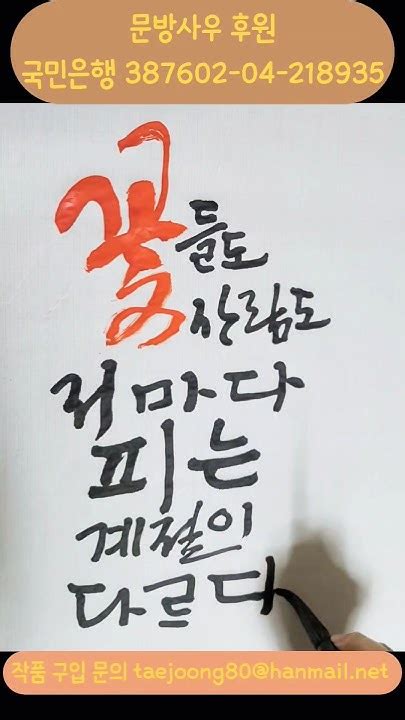 문방사우 후원
국민은행 387602-04-218935
꽃들도
사람도
저마다
피는
계절이
다르다
작품 구입 문의 taejoong80@hanmail.net